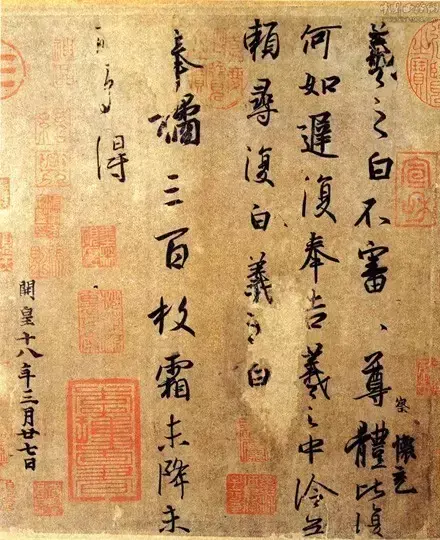 羲之白不審、尊體比復
察 懷充
何如遲復奉告羲之中冷無
賴尋復白羲之白
奉橘三百枚霜未降未
可多得
開皇十八年三月廿七日